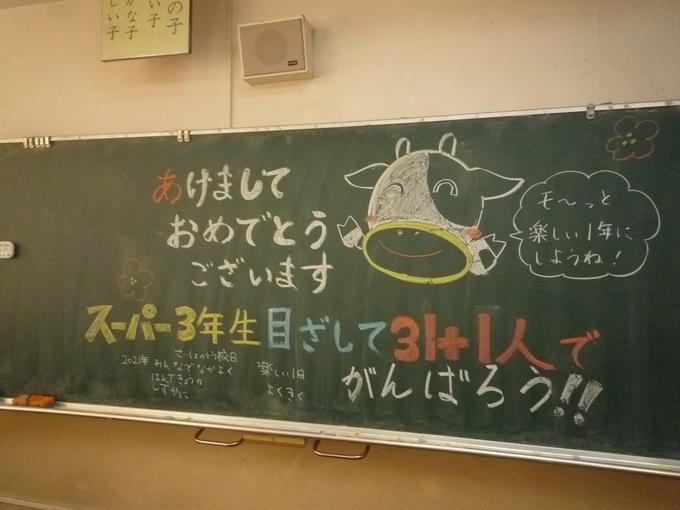 の子
い子
かな子
しい子
あけまして
おめでとう
ございます
モ～っと
楽しい1年に
しようね！
スーパー3年生目ざして31+1人で
がんばろう!!
さいしょのとう校日
2021年 みんなでなかよく
はんできょう力
しずかに
楽しい1日
よくきく